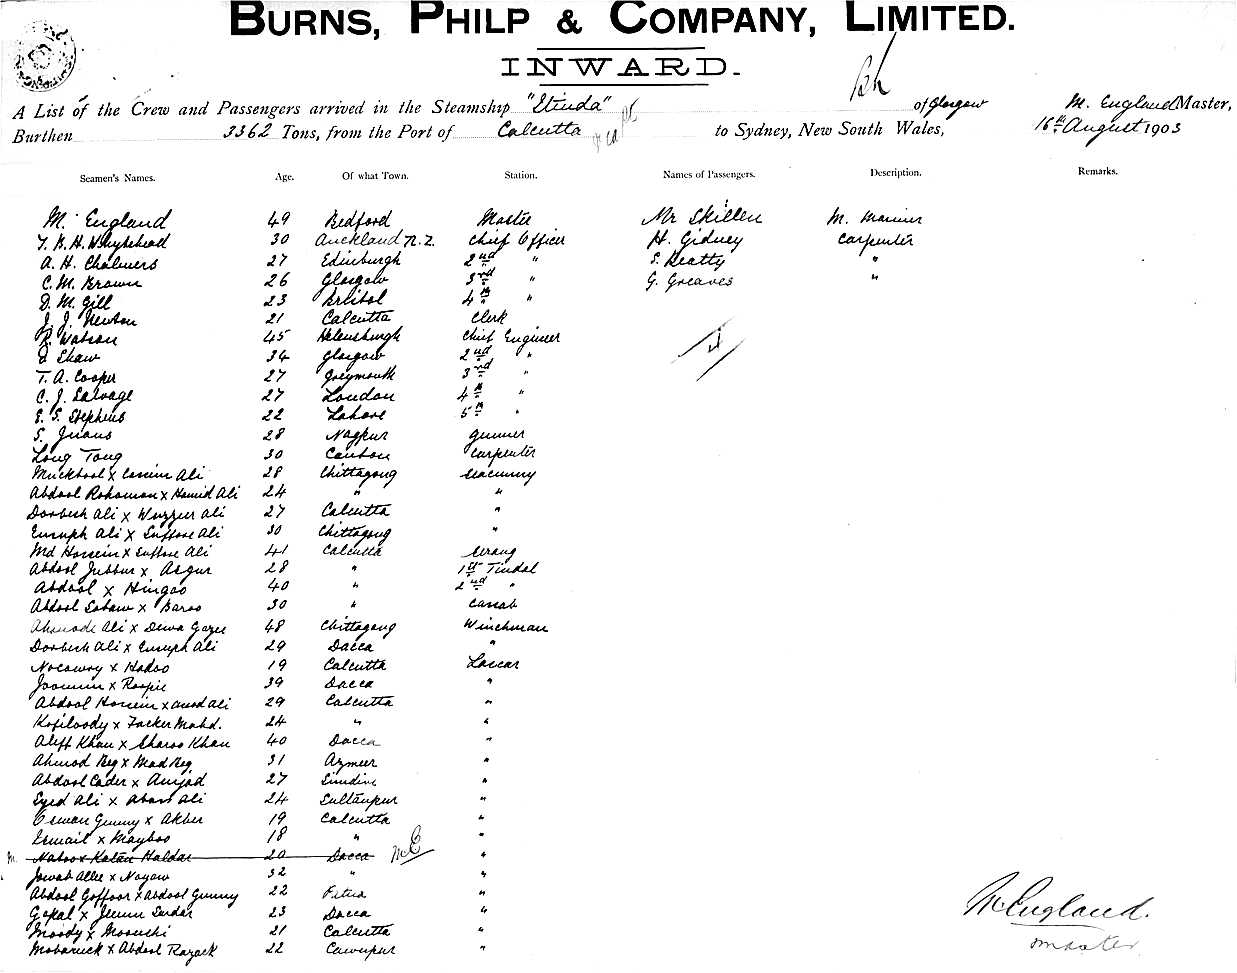 BURNS, PHILP & COMPANY, LIMITED.
INWARD.
A List of the Crew and Passengers arrived in the Steamship "Itinda" of Glasgow M. England Master,
Burthen 3362 Tons, from the Port of Calcutta to Sydney, New South Wales, 16th August 1903
Seamen's Names. Age. Of what Town. Station. Names of Passengers. Description. Remarks.
M. England 49 Bedford Master Mr Skillen M. Mariner
T. K. H. Whytehead 30 Auckland N.Z. Chief Officer H. Gidney Carpenter
A. H. Chalmers 27 Edinburgh 2nd " S. Beatty "
C. M. Brown 26 Glasgow 3rd " G. Greaves "
D. M. Gill 23 Bristol 4th "
J. J. Newton 21 Calcutta Clerk
R. Watson 45 Helensburgh Chief Engineer
Shaw 34 Glasgow 2nd "
T. A. Cooper 27 Greymouth 3rd "
C. J. Salvage 27 London 4th "
S. S. Stephens 22 Lahore 5th "
S. 28 Nagpur Gunner
Long Tong 30 Canton Carpenter
Muckbool x Cassim Ali 28 Chittagong Seacunny
Abdool Rohoman x Hamid Ali 24 " "
Dorbesh Ali x Wuzzur Ali 27 Calcutta "
Eusuph Ali x Suffore Ali 30 Chittagong "
Md Hossein x Suffore Ali 41 Calcutta Serang
Abdool Jubbur x Asgur 28 " 1st Tindal
Abdool x Hingoo 40 " 2nd "
Abdool x Baroo 30 " Cassab
Ali x Dewa Gazee 48 Chittagong Winchman
Dorbesh Ali x Eusuph Ali 29 Dacca "
Nocowry x Hadoo 19 Calcutta Lascar
Joomun x Roopie 39 Dacca "
Abdool Hossein x Ali 29 Calcutta "
Kofiloody x Zacker Mahd. 24 " "
Aliff Khan x Sharoo Khan 40 Dacca "
Ahmod Beg x Mad Beg 31 Azmeer "
Abdool Cader x Amjad 27 "
Syed Ali x Abas Ali 24 Sultanpur "
Osman Gunny x Akber 19 Calcutta "
Esmail x Mayboo 18 " "
Naboo x Kalan Haldar 20 Dacca ME "
Jowab Allee x Noyaw 32 " "
Abdool Goffoor x Abdool Gunny 22 "
Gopal x Jeerun Sirdar 23 Dacca "
Moody x Moouchi 21 Calcutta "
Mobaruck x Abdool Razack 22 Cawnpur "
M England.
Master